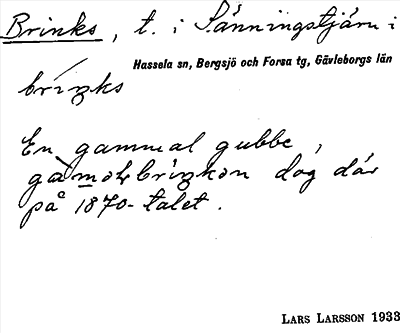 Brinks, t. i Sänningstjärn i
Hassela sn, Bergsjö och Forsa tg, Gävleborgs län
briŋks
En gammal gubbe,
dog där
på 1870-talet.
LARS LARSSON 1933